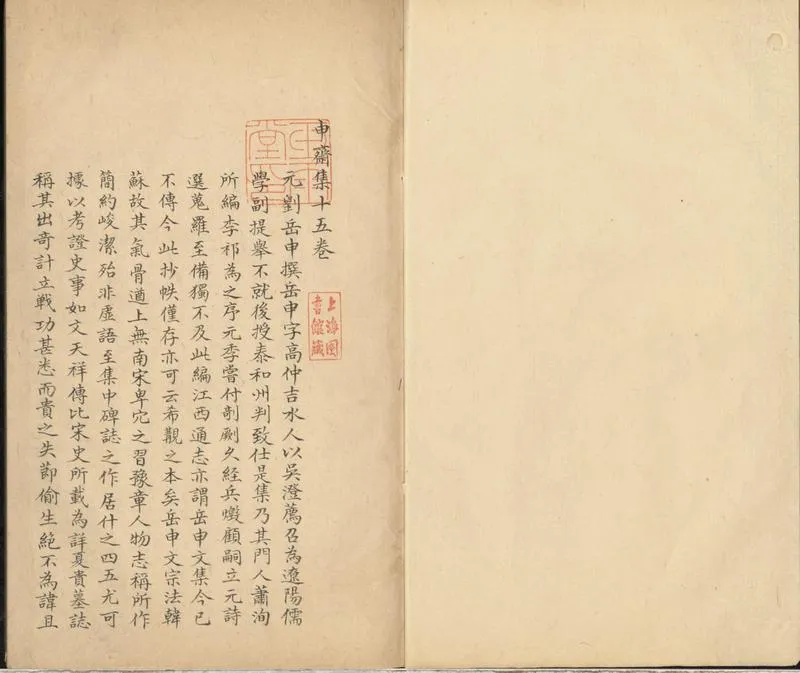 申齋集十五卷
元劉岳申撰岳申字高仲吉水人以吳澄薦召為遼陽儒
學副提舉不就後授泰和州判致仕是集乃其門人蕭洵
所編李祁為之序元季嘗付剞劂久經兵燹顧嗣立元詩
選蒐羅至備獨不及此編江西通志亦謂岳申文集今已
不傳今此抄帙僅存亦可云希覯之本矣岳申文宗法韓
蘇故其氣骨遒上無南宋卑宂之習豫章人物志稱所作
簡約峻潔殆非虛語至集中碑誌之作居什之四五尤可
據以考證史事如文天祥傳比宋史所載為詳夏貴墓誌
稱其出奇計立戰功甚悉而貴之失節偷生絕不為諱且
上海圖
書館藏